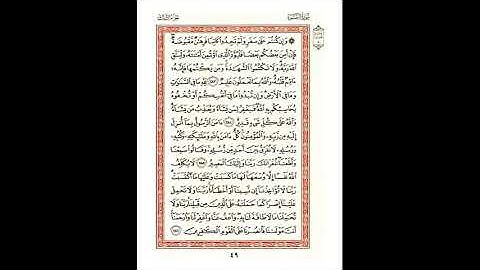 سُورَةُ البَقَرَةِ الجُزْءُ الثَّالِثُ
۞ وَإِن كُنتُمْ عَلَىٰ سَفَرٍ وَلَمْ تَجِدُوا۟ كَاتِبًا فَرِهَٰنٌ مَّقْبُوضَةٌ
فَإِنْ أَمِنَ بَعْضُكُم بَعْضًا فَلْيُؤَدِّ ٱلَّذِى ٱؤْتُمِنَ أَمَٰنَتَهُۥ وَلْيَتَّقِ
ٱللَّهَ رَبَّهُۥ وَلَا تَكْتُمُوا۟ ٱلشَّهَٰدَةَ وَمَن يَكْتُمْهَا فَإِنَّهُۥٓ
ءَاثِمٌ قَلْبُهُۥ وَٱللَّهُ بِمَا تَعْمَلُونَ عَلِيمٌ ٢٨٣ لِّلَّهِ مَا فِى ٱلسَّمَٰوَٰتِ
وَمَا فِى ٱلْأَرْضِ وَإِن تُبْدُوا۟ مَا فِىٓ أَنفُسِكُمْ أَوْ تُخْفُوهُ
يُحَاسِبْكُم بِهِ ٱللَّهُ فَيَغْفِرُ لِمَن يَشَآءُ وَيُعَذِّبُ مَن يَشَآءُ
وَٱللَّهُ عَلَىٰ كُلِّ شَىْءٍ قَدِيرٌ ٢٨٤ ءَامَنَ ٱلرَّسُولُ بِمَآ أُنزِلَ
إِلَيْهِ مِن رَّبِّهِۦ وَٱلْمُؤْمِنُونَ كُلٌّ ءَامَنَ بِٱللَّهِ وَمَلَٰٓئِكَتِهِۦ وَكُتُبِهِۦ
وَرُسُلِهِۦ لَا نُفَرِّقُ بَيْنَ أَحَدٍ مِّن رُّسُلِهِۦ وَقَالُوا۟ سَمِعْنَا
وَأَطَعْنَا غُفْرَانَكَ رَبَّنَا وَإِلَيْكَ ٱلْمَصِيرُ ٢٨٥ لَا يُكَلِّفُ
ٱللَّهُ نَفْسًا إِلَّا وُسْعَهَا لَهَا مَا كَسَبَتْ وَعَلَيْهَا مَا ٱكْتَسَبَتْ
رَبَّنَا لَا تُؤَاخِذْنَآ إِن نَّسِينَآ أَوْ أَخْطَأْنَا رَبَّنَا وَلَا تَحْمِلْ
عَلَيْنَآ إِصْرًا كَمَا حَمَلْتَهُۥ عَلَى ٱلَّذِينَ مِن قَبْلِنَا رَبَّنَا وَلَا
تُحَمِّلْنَا مَا لَا طَاقَةَ لَنَا بِهِۦ وَٱعْفُ عَنَّا وَٱغْفِرْ لَنَا وَٱرْحَمْنَآ
أَنتَ مَوْلَىٰنَا فَٱنصُرْنَا عَلَى ٱلْقَوْمِ ٱلْكَٰفِرِينَ ٢٨٦
٤٩